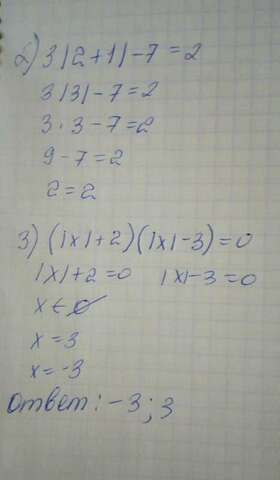 2) 3|2+1|-7=2
3|3|-7=2
3·3-7=2
9-7=2
2=2
3) (|x|+2)(|x|-3)=0
|x|+2=0 |x|-3=0
x∈∅
x=3
x=-3
Ответ: -3; 3